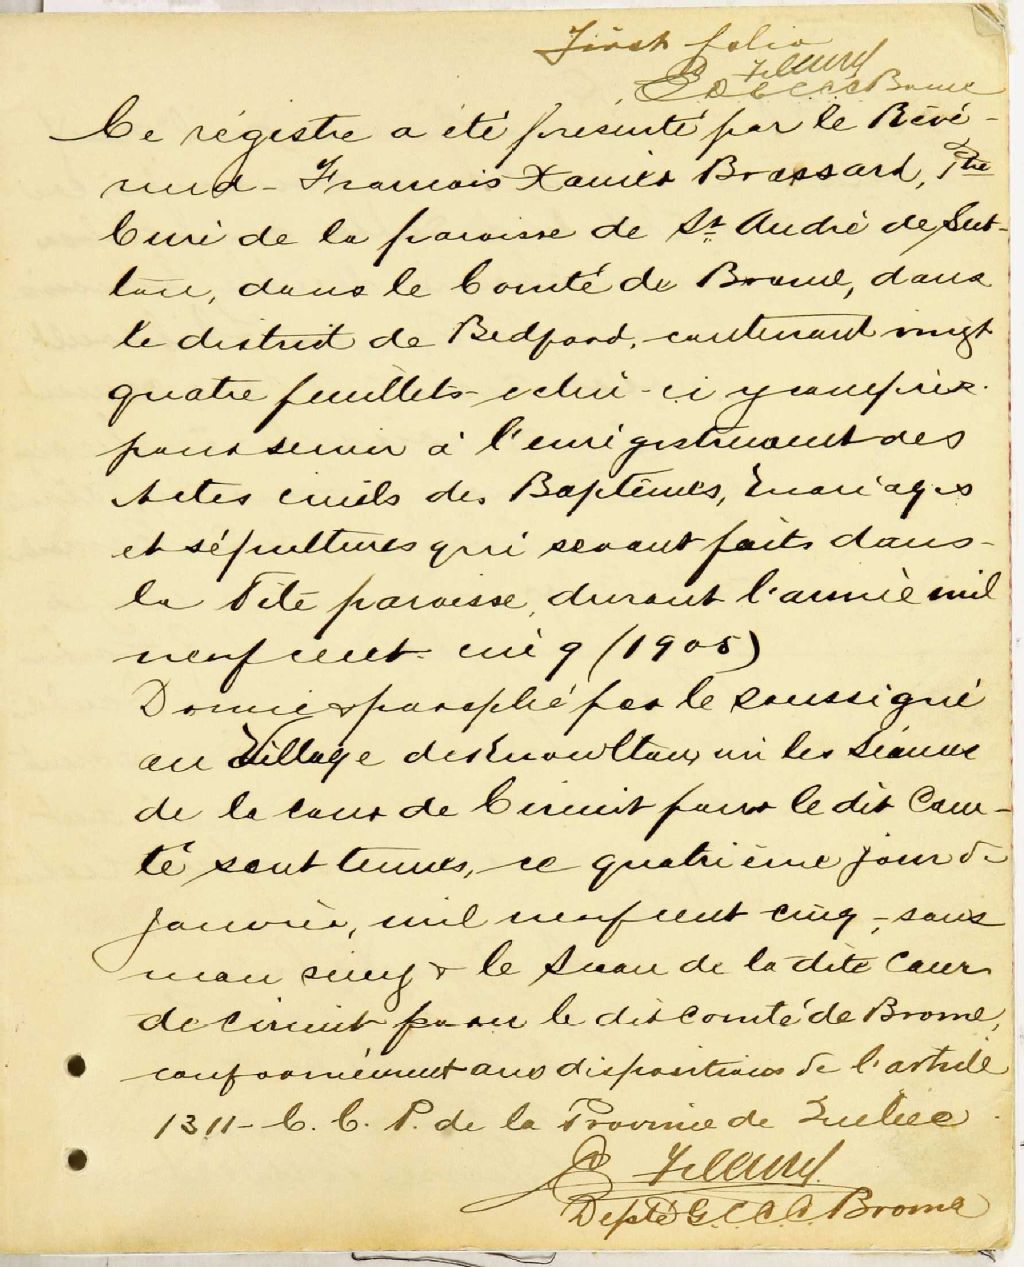 First folio
D C C C C Brome
Ce régistre a été présenté par le Révé-
rend - Francois Xavier Brassard, Ptre
Curé de la paroisse de St André de Sut-
ton, dans le Comté de Brome, dans
le district de Bedford, contenant vingt
quatre feuillets - celui-ci y compris.
pour servir à l'enrégistrement des
Actes civils des Baptêmes, Mariages
et sépultures qui seront faits dans -
la dite paroisse, durant l'année mil
neuf cent cinq (1905)
Donné & paraphé par le soussigné
au Village de Knowlton, où les séances
de la cour de Circuit pour le dit Com-
té sont tenues, ce quatrième jour de
janvier, mil neuf cent cinq, - sous
mon seing & le Sceau de la dite Cour
de Circuit pour le dit comté de Brome,
conformément aux dispositions de l'article
1311 - C. C. P. de la Province de Québec.
Depté G. C. C. C. Brome